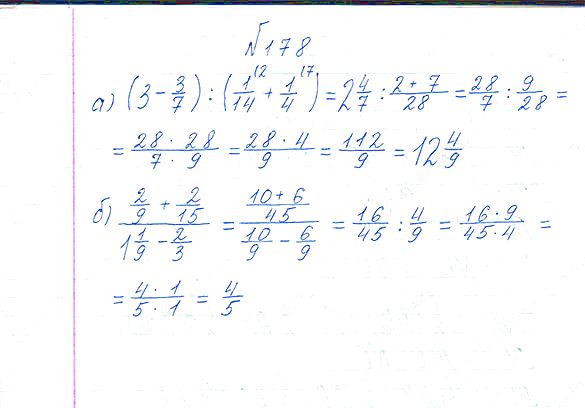 №178
а) (3 - 3/7) : (1/14 ⁽² + 1/4 ⁽⁷) = 2 4/7 : (2+7)/28 = 28/7 : 9/28 =
= (28 · 28)/(7 · 9) = (28 · 4)/9 = 112/9 = 12 4/9
б) (2/9 + 2/15)/(1 1/9 - 2/3) = ((10+6)/45)/(10/9 - 6/9) = 16/45 : 4/9 = (16 · 9)/(45 · 4) =
= (4 · 1)/(5 · 1) = 4/5